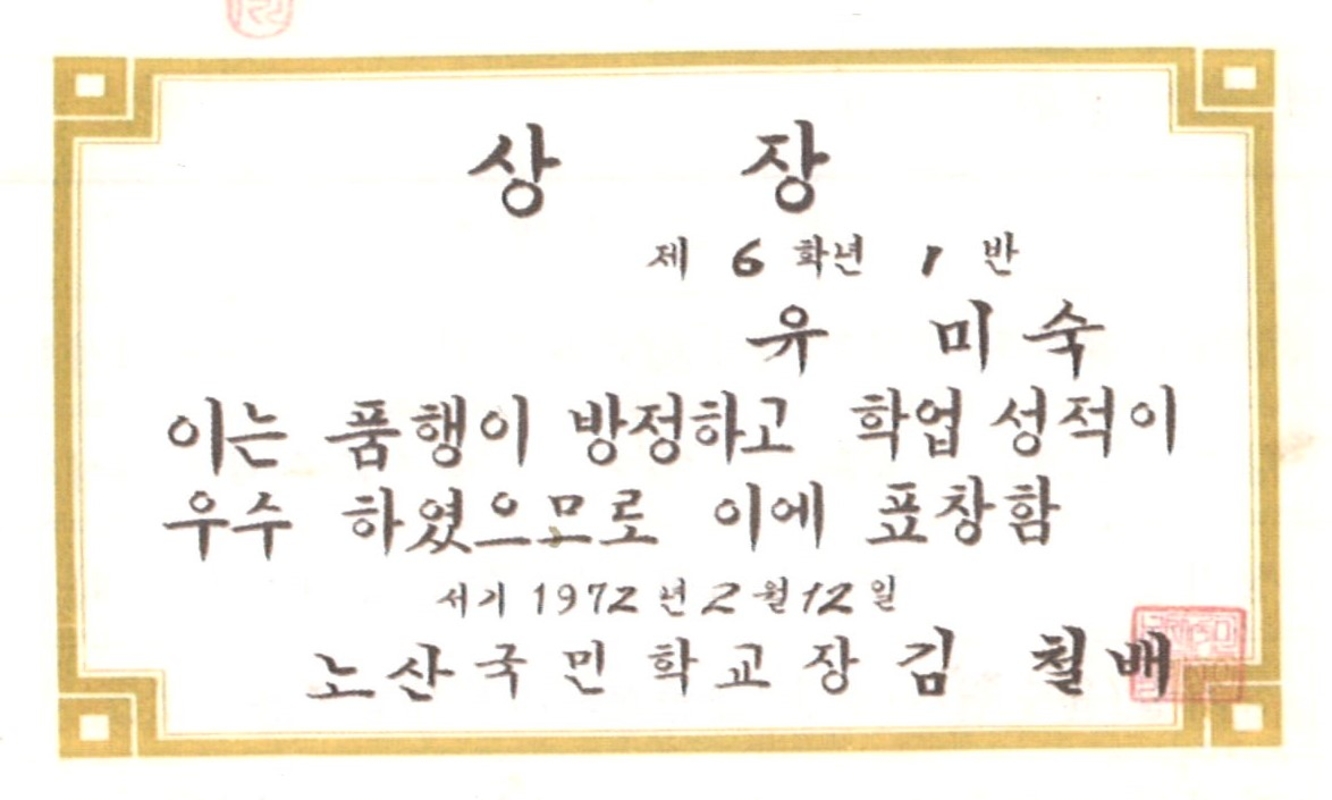 상 장
제 6 학년 1 반
유 미숙
이는 품행이 방정하고 학업 성적이
우수 하였으므로 이에 표창함
서기 1972 년 2 월 12 일
노산국민학교장 김 철배